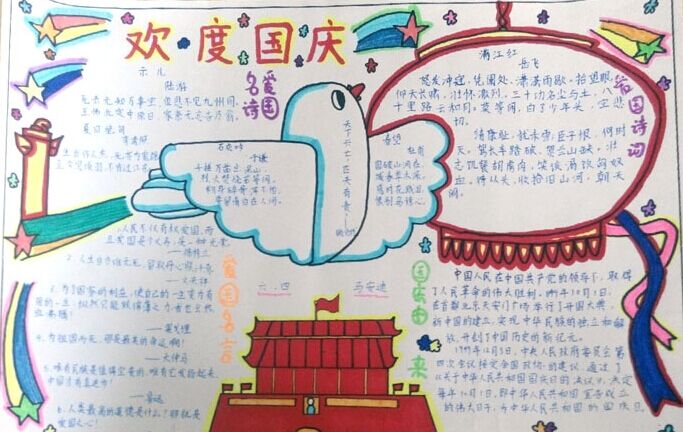 欢度国庆
示儿
陆游
死去元知万事空,但悲不见九州同。
王师北定中原日,家祭无忘告乃翁。
夏日绝句
李清照
生当作人杰,死亦为鬼雄
至今思项羽,不肯过江东
爱国名诗
石灰吟
于谦
千锤万凿出深山,
烈火焚烧若等闲。
粉骨碎身浑不怕,
要留清白在人间。
天下兴亡,匹夫有责
春望
杜甫
国破山河在
城春草木深。
感时花溅泪
恨别鸟惊心。
满江红
岳飞
怒发冲冠,凭阑处、潇潇雨歇。抬望眼,
仰天长啸,壮怀激烈。三十功名尘与土,八
千里路云和月。莫等闲、白了少年头,空悲
切。
靖康耻,犹未雪。臣子恨,何时
灭。驾长车踏破、贺兰山缺。壮
志饥餐胡虏肉,笑谈渴饮匈奴
血。待从头、收拾旧山河,朝天
阙。
爱国诗词
人民不仅有权爱国,而
且爱国是个义务,是一种光荣。
——徐特立
2、人生自古谁无死,留取丹心照汗青。
——文天祥
为了国家的利益,使自己的一生变为有
用的一生,
——果戈理
为祖国而死,那是最美的命运啊!
——大仲马
5、唯有民族魂是值得宝贵的,唯有它发扬起来,
中国才有真进步!
——鲁迅
6、人类最高的道德是什么?那就是
爱国之心!
爱国名言
六.四 马安迪
国庆由来
中国人民在中国共产党的领导下,取得
了人民革命的伟大胜利。1949年10月1日,
在首都北京天安门广场举行了开国大典,
新中国的建立,实现中华民族的独立和解
放,开创了中国历史的新纪元。
1949年12月3日,中央人民政府委员会第
四次会议接受全国政协的建议,通过了
《关于中华人民共和国国庆日的决议》,决定
每年10月1日,即中华人民共和国宣告成立
的伟大日子,为中华人民共和国的国庆日。